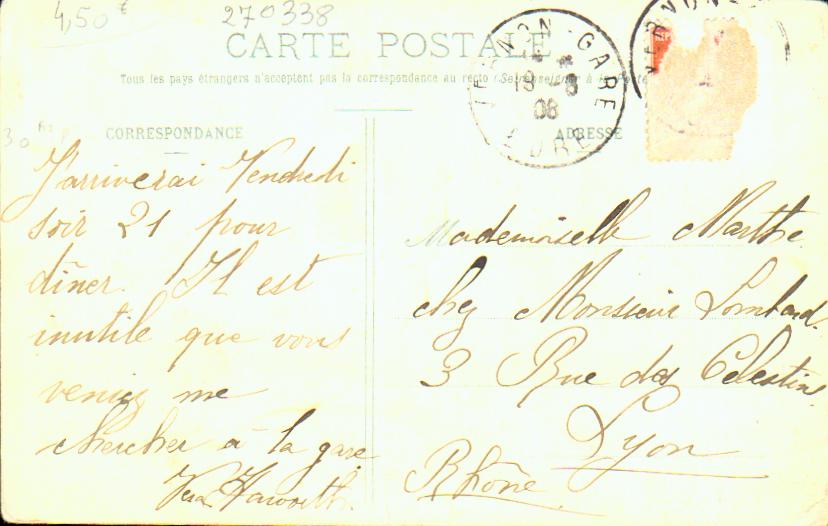 4,50€
270338
CARTE POSTALE
Tous les pays étrangers n'acceptent pas la correspondance au recto (Se renseigner à la Poste
CORRESPONDANCE
J'arriverai Vendredi
soir 21 pour
dîner. Il est
inutile que vous
veniez me
chercher à la gare
Vera Haworth
VERNON-GARE
19 -8
08
EURE
VERNON
ADRESSE
Mademoiselle Marthe
chez Monsieur Lombard
3 Rue des Celestins
Lyon
Rhône